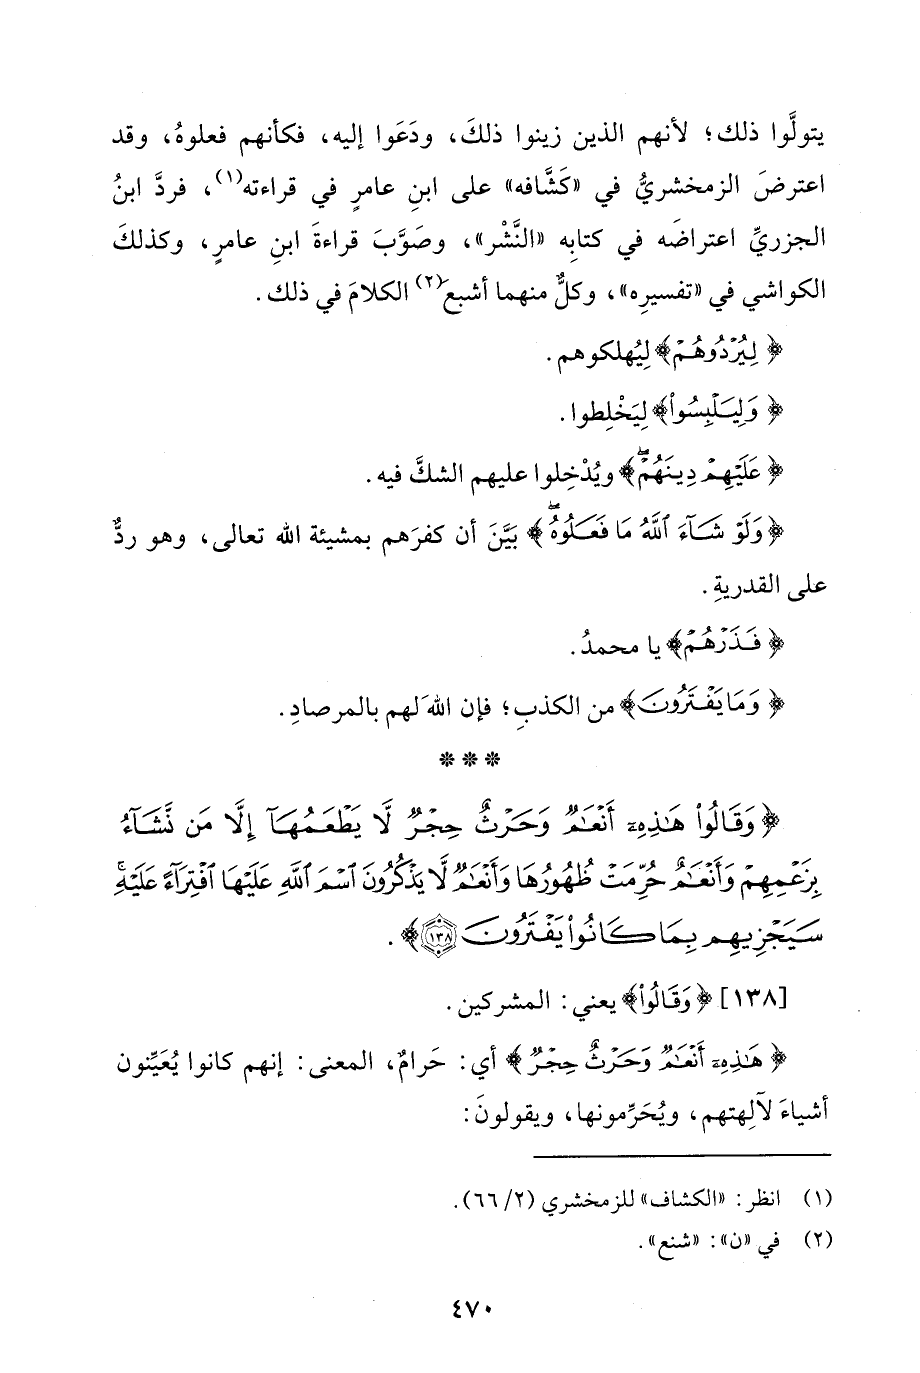 يتولَّوا ذلك؛ لأنهم الذين زينوا ذلكَ، ودَعَوا إليه، فكأنهم فعلوهُ، وقد
اعترضَ الزمخشريُّ في «كَشَّافه» على ابنِ عامرٍ في قراءته(١)، فردَّ ابنُ
الجزريِّ اعتراضَه في كتابِه «النَّشْر»، وصَوَّبَ قراءةَ ابنِ عامرٍ، وكذلكَ
الكواشي في «تفسيرِه»، وكلٌّ منهما أشبعَ(٢) الكلامَ في ذلك.
﴿لِيُرْدُوهُمْ﴾ لِيُهلكوهم.
﴿وَلِيَلْبِسُوا۟﴾ لِيَخْلِطوا.
﴿عَلَيْهِمْ دِينَهُمْ ۖ﴾ ويُدْخِلوا عليهم الشكَّ فيه.
﴿وَلَوْ شَآءَ ٱللَّهُ مَا فَعَلُوهُ ۖ﴾ بَيَّنَ أن كفرَهم بمشيئة الله تعالى، وهو ردٌّ
على القدريةِ.
﴿فَذَرْهُمْ﴾ يا محمدُ.
﴿وَمَا يَفْتَرُونَ﴾ من الكذبِ؛ فإن اللهَ لهم بالمرصادِ.
* * *
﴿وَقَالُوا۟ هَٰذِهِۦٓ أَنْعَٰمٌ وَحَرْثٌ حِجْرٌ لَّا يَطْعَمُهَآ إِلَّا مَن نَّشَآءُ
بِزَعْمِهِمْ وَأَنْعَٰمٌ حُرِّمَتْ ظُهُورُهَا وَأَنْعَٰمٌ لَّا يَذْكُرُونَ ٱسْمَ ٱللَّهِ عَلَيْهَا ٱفْتِرَآءً عَلَيْهِ ۚ
سَيَجْزِيهِم بِمَا كَانُوا۟ يَفْتَرُونَ ١٣٨﴾.
[١٣٨] ﴿وَقَالُوا۟﴾ يعني: المشركين.
﴿هَٰذِهِۦٓ أَنْعَٰمٌ وَحَرْثٌ حِجْرٌ﴾ أي: حَرامٌ، المعنى: إنهم كانوا يُعَيِّنون
أشياءَ لآلِهتهم، ويُحَرِّمونها، ويقولونَ:
(١) انظر: «الكشاف» للزمخشري (٢/ ٦٦).
(٢) في «ن»: «شنع».
٤٧٠